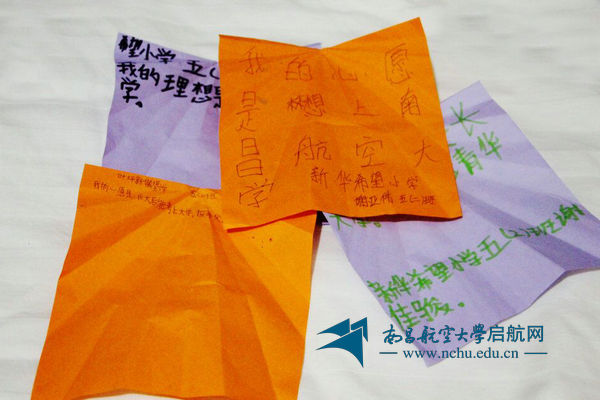 望小学 五(
我的理想是
学。
我的心愿
是梦想上南
昌航空大
学
新华希望小学
五(二)班
长
青华
大
新华希望小学五(2)班谢
佳骏。
我的心愿是长大后
上大学
南昌航空大学启航网
www.nchu.edu.cn